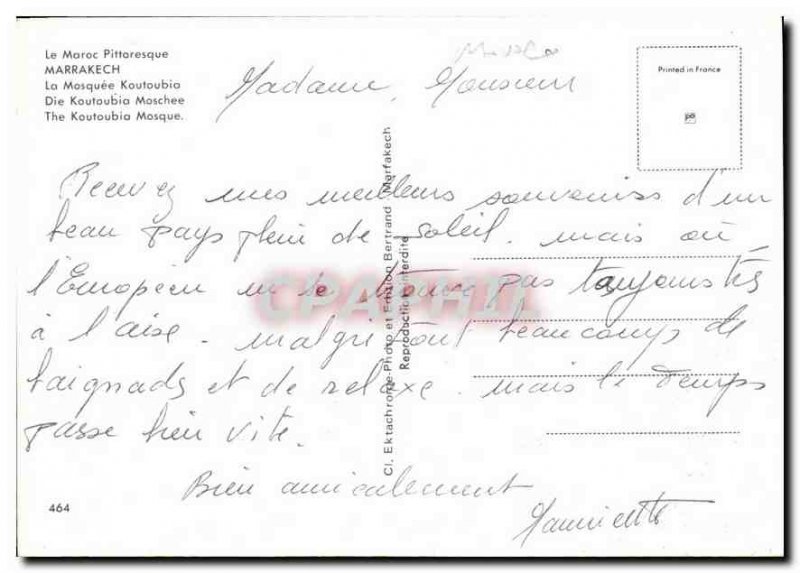 Le Maroc Pittoresque
MARRAKECH
La Mosquée Koutoubia
Die Koutoubia Moschee
The Koutoubia Mosque.
Maroc
Printed in France
Madame, Monsieur
Recevez mes meilleurs souvenirs d'un
beau pays plein de soleil. mais où
l'Européen ne se trouve pas toujours très
à l'aise. malgré tout beaucoup de
baignads et de relaxe. mais le temps
passe bien vite.
Bien amicalement
Mauricette
Cl. Ektachrome-Photo et Edition Bertrand Marrakech
Reproduction interdite
CPAPHIL
464